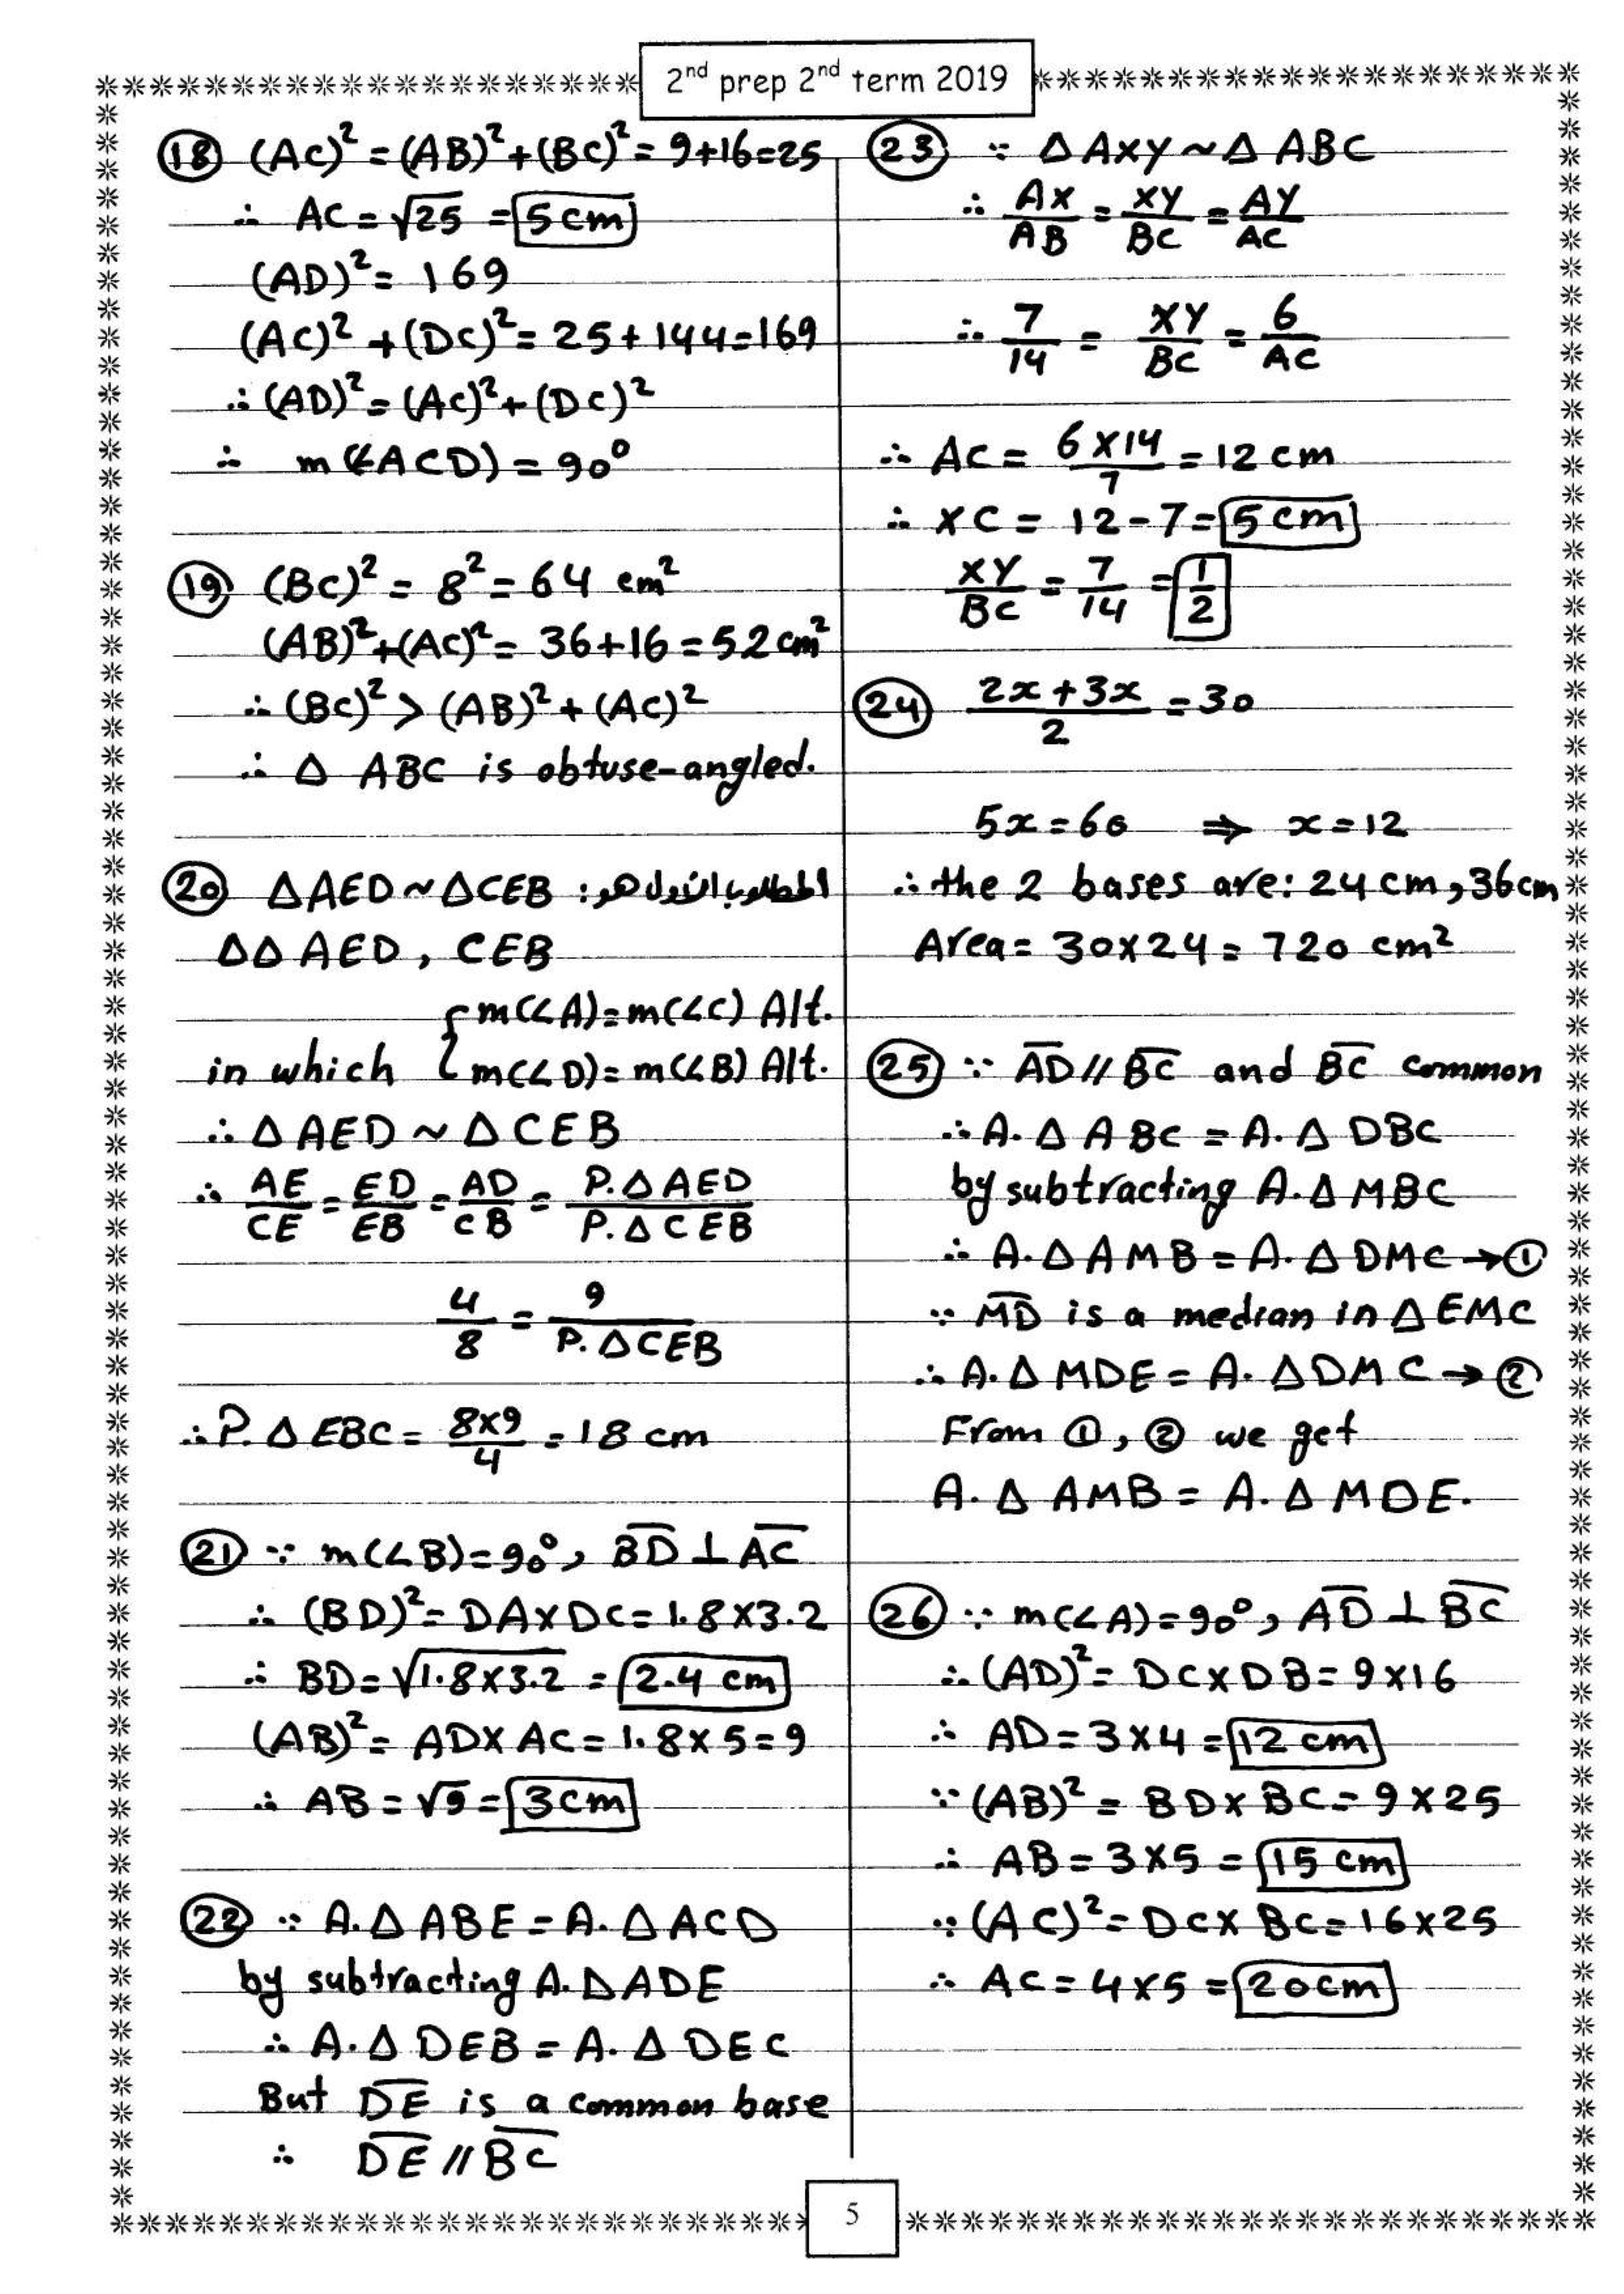 2nd prep 2nd term 2019
(18) (AC)² = (AB)² + (BC)² = 9+16=25
∴ AC = √25 = 5 cm
(AD)² = 169
(AC)² + (DC)² = 25+144=169
∴ (AD)² = (AC)² + (DC)²
∴ m(∠ACD) = 90°
(19) (BC)² = 8² = 64 cm²
(AB)² + (AC)² = 36+16 = 52 cm²
∴ (BC)² > (AB)² + (AC)²
∴ Δ ABC is obtuse-angled.
(20) ΔAED ~ ΔCEB المطلوب الأول هو:
ΔΔ AED, CEB
{ m(∠A)=m(∠C) Alt.
in which { m(∠D)=m(∠B) Alt.
∴ Δ AED ~ Δ CEB
∴ AE/CE = ED/EB = AD/CB = P.Δ AED/P.Δ CEB
4/8 = 9/P.ΔCEB
∴ P.Δ EBC = 8×9/4 = 18 cm
(21) ∵ m(∠B)=90°, B̅D̅ ⊥ A̅C̅
∴ (BD)² = DA×DC = 1.8×3.2
∴ BD = √1.8×3.2 = 2.4 cm
(AB)² = AD×AC = 1.8×5=9
∴ AB = √9 = 3 cm
(22) ∵ A.Δ ABE = A.Δ ACD
by subtracting A.Δ ADE
∴ A.Δ DEB = A.Δ DEC
But D̅E̅ is a common base
∴ D̅E̅ // B̅C̅
(23) ∵ Δ AXY ~ Δ ABC
∴ AX/AB = XY/BC = AY/AC
∴ 7/14 = XY/BC = 6/AC
∴ AC = 6×14/7 = 12 cm
∴ XC = 12-7 = 5 cm
XY/BC = 7/14 = 1/2
(24) 2x+3x/2 = 30
5x=60 ⇒ x=12
∴ the 2 bases are: 24 cm, 36 cm
Area = 30×24 = 720 cm²
(25) ∵ A̅D̅ // B̅C̅ and B̅C̅ common
∴ A.Δ ABC = A.Δ DBC
by subtracting A.Δ MBC
∴ A.Δ AMB = A.Δ DMC → ①
∵ M̅D̅ is a median in Δ EMC
∴ A.Δ MDE = A.Δ DMC → ②
From ①, ② we get
A.Δ AMB = A.Δ MDE.
(26) ∵ m(∠A)=90°, A̅D̅ ⊥ B̅C̅
∴ (AD)² = DC×DB = 9×16
∴ AD = 3×4 = 12 cm
∵ (AB)² = BD×BC = 9×25
∴ AB = 3×5 = 15 cm
∵ (AC)² = DC×BC = 16×25
∴ AC = 4×5 = 20 cm
5